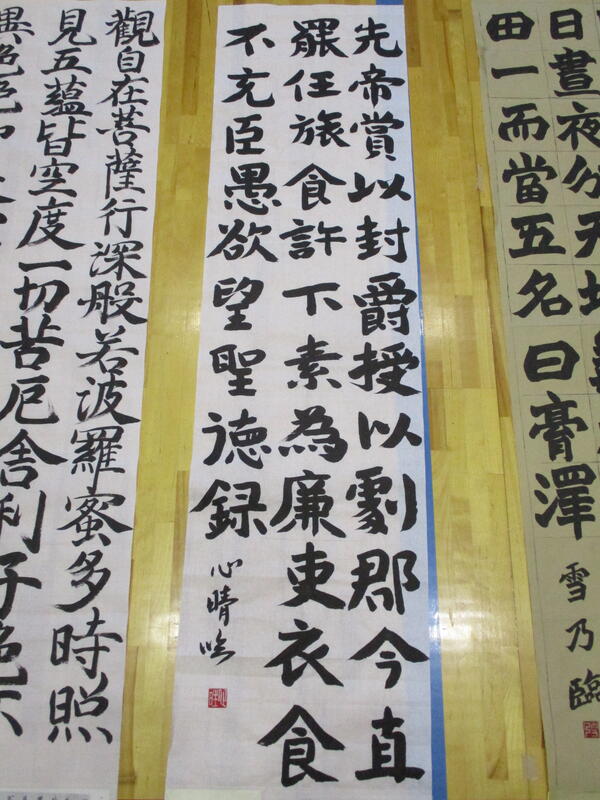 日晝夜分天地
田一而當五名曰膏澤
雪乃臨
先帝賞以封爵授以劇郡今直
罷任旅食許下素為廉吏衣食
不充臣愚欲望聖徳録
心晴臨
觀自在菩薩行深般若波羅蜜多時照
見五蘊皆空度一切苦厄舍利子色不
異色色即